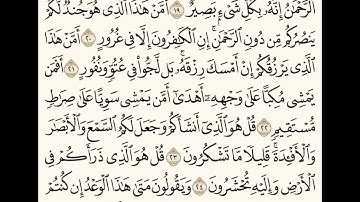 ٱلرَّحْمَٰنُ إِنَّهُۥ بِكُلِّ شَىْءٍۭ بَصِيرٌ ١٩ أَمَّنْ هَٰذَا ٱلَّذِى هُوَ جُندٌ لَّكُمْ
يَنصُرُكُم مِّن دُونِ ٱلرَّحْمَٰنِ إِنِ ٱلْكَٰفِرُونَ إِلَّا فِى غُرُورٍ ٢٠ أَمَّنْ هَٰذَا
ٱلَّذِى يَرْزُقُكُمْ إِنْ أَمْسَكَ رِزْقَهُۥ بَل لَّجُّوا۟ فِى عُتُوٍّ وَنُفُورٍ ٢١ أَفَمَن
يَمْشِى مُكِبًّا عَلَىٰ وَجْهِهِۦٓ أَهْدَىٰٓ أَمَّن يَمْشِى سَوِيًّا عَلَىٰ صِرَٰطٍ
مُّسْتَقِيمٍ ٢٢ قُلْ هُوَ ٱلَّذِىٓ أَنشَأَكُمْ وَجَعَلَ لَكُمُ ٱلسَّمْعَ وَٱلْأَبْصَٰرَ
وَٱلْأَفْـِٔدَةَ قَلِيلًا مَّا تَشْكُرُونَ ٢٣ قُلْ هُوَ ٱلَّذِى ذَرَأَكُمْ فِى
ٱلْأَرْضِ وَإِلَيْهِ تُحْشَرُونَ ٢٤ وَيَقُولُونَ مَتَىٰ هَٰذَا ٱلْوَعْدُ إِن كُنتُمْ